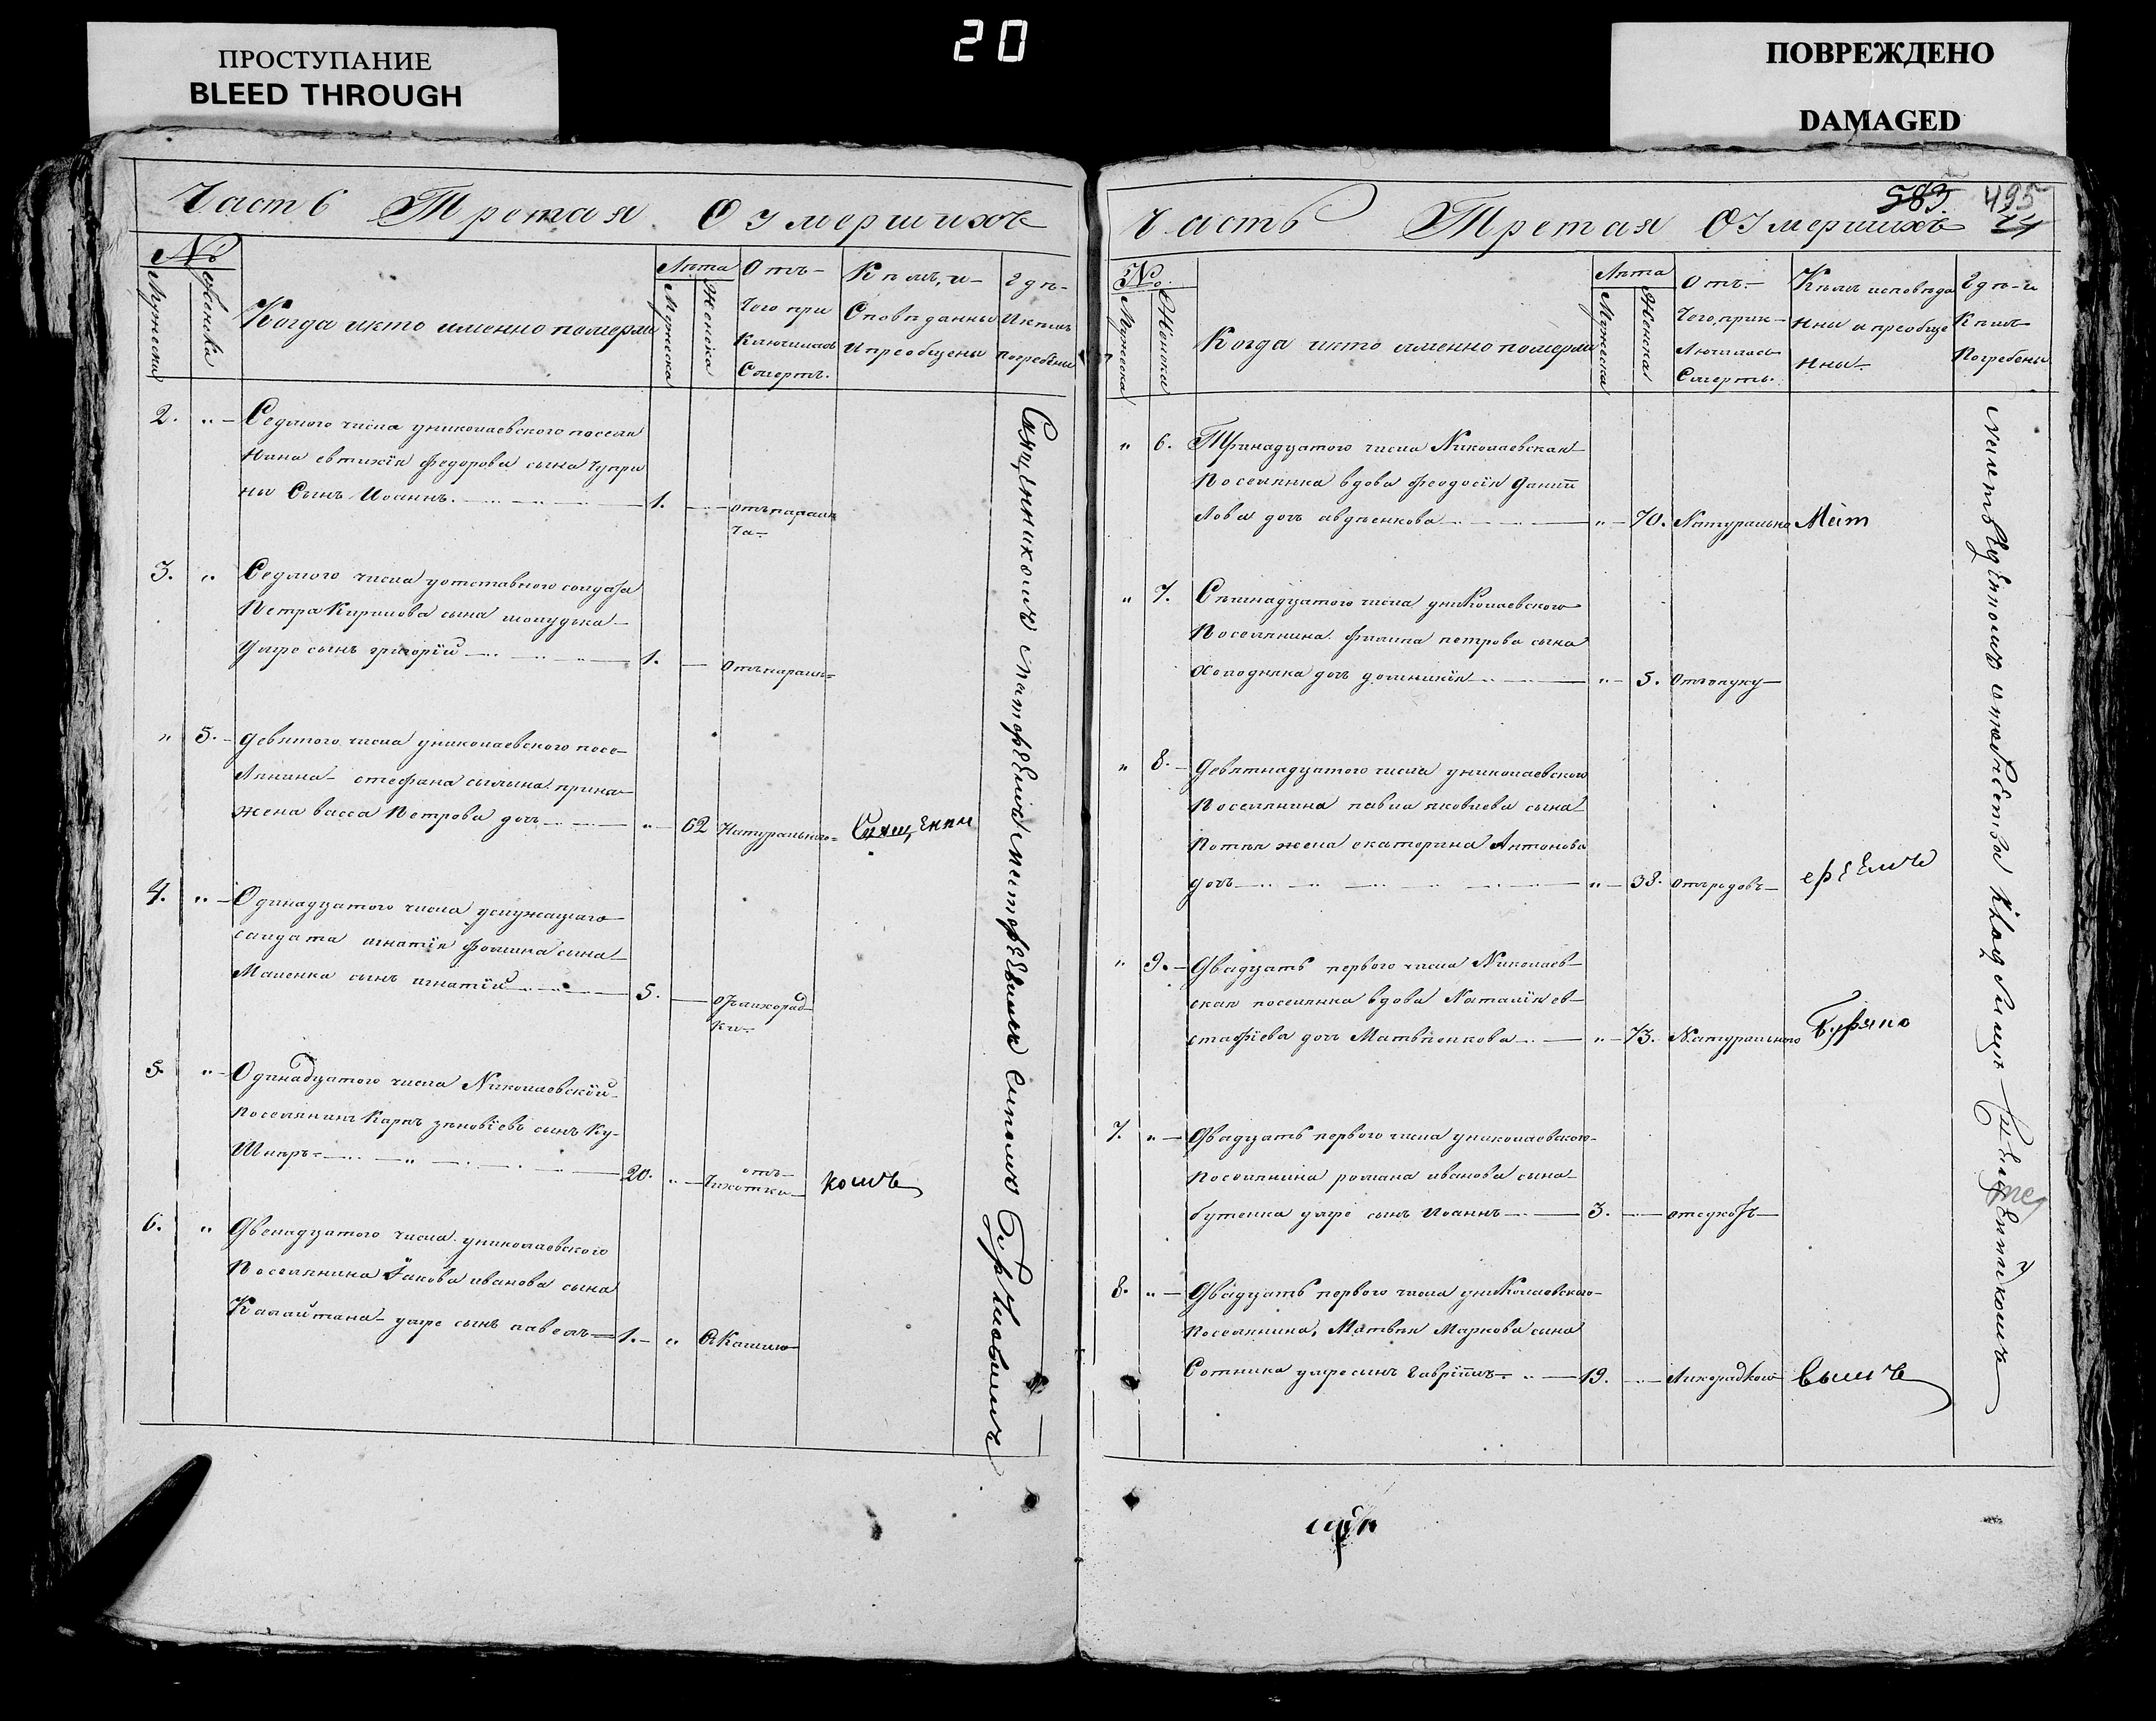 20
ПРОСТУПАНИЕ
BLEED THROUGH
ПОВРЕЖДЕНО
DAMAGED
Часть Третая О Умершихъ
№
Мужеска
Женска
Когда икто именно померли
Лѣта
Мужеска
Женска
Отъ
Чего при
Ключилась
Смерть.
Кѣмъ, и
Сповѣданны
И преобщены
Гдѣ
И кѣмъ
погребены
2. „ Седмого числа униколаевского поселя
нина евтихія федорова сына Чупри
ны Сынъ Иоаннъ. 1.
3. „ Седмого числа уотставного солдата
Петра Кирилова сына шолудька
Умре сынъ григорій 1.
„ 5. девятого числа униколаевского посе
лянина стефана сылына
жена васса Петрова дочь „ 62 Натурального Священни
4. „ Одинадцатого числа услужащаго
салдата игнатія фомина сына
Маленка сынъ игнатій 5. отълихорад
ки
5. „ Одинадцатого числа Николаевскій
поселянинъ Карпъ зѣновіевъ сынъ Ку
Шниръ 20. „ отъ
Чихотки комъ
6. „ Двенадцатого числа униколаевского
Поселянина Іакова иванова сына
Калайтана умре сынъ павелъ 1. „
Священникомъ
583. 495
Часть Третая О Умершихъ
№.
Мужеска
Женска
Когда икто именно померли
Лѣта
Мужеска
Женска
Отъ
Чего прик
лючилась
Смерть.
Кѣмъ исповѣда
нны и преобще
нны
Гдѣ и
Кѣмъ
Погребены
„ 6. Тринадцатого числа Николаевская
Поселянка вдова феодосія Даниі
лова дочь авдѣенкова „ 70. Натурально
„ 7. числа униколаевского
Поселянина филипа петрова сына
Холодняка дочь домникія „ 5.
„ 8. Девятнадцатого числа униколаевского
Поселянина павла яковлева сына
жена екатерина Антонова
дочь „ 38. отъродовъ
„ 9. Двадцать первого числа Николаев
ская поселянка вдова Наталія ев
стафіева дочь Матвѣенкова „ 73. Натурального
7. „ Двадцать первого числа униколаевского
Поселянина романа иванова сына
бутенка умре сынъ Иоаннъ 3.
8. „ Двадцать первого числа униколаевского
Поселянина, Матвѣя Маркова сына
Сотника умре сынъ Гавріилъ 19. Лихорадкою вымъ